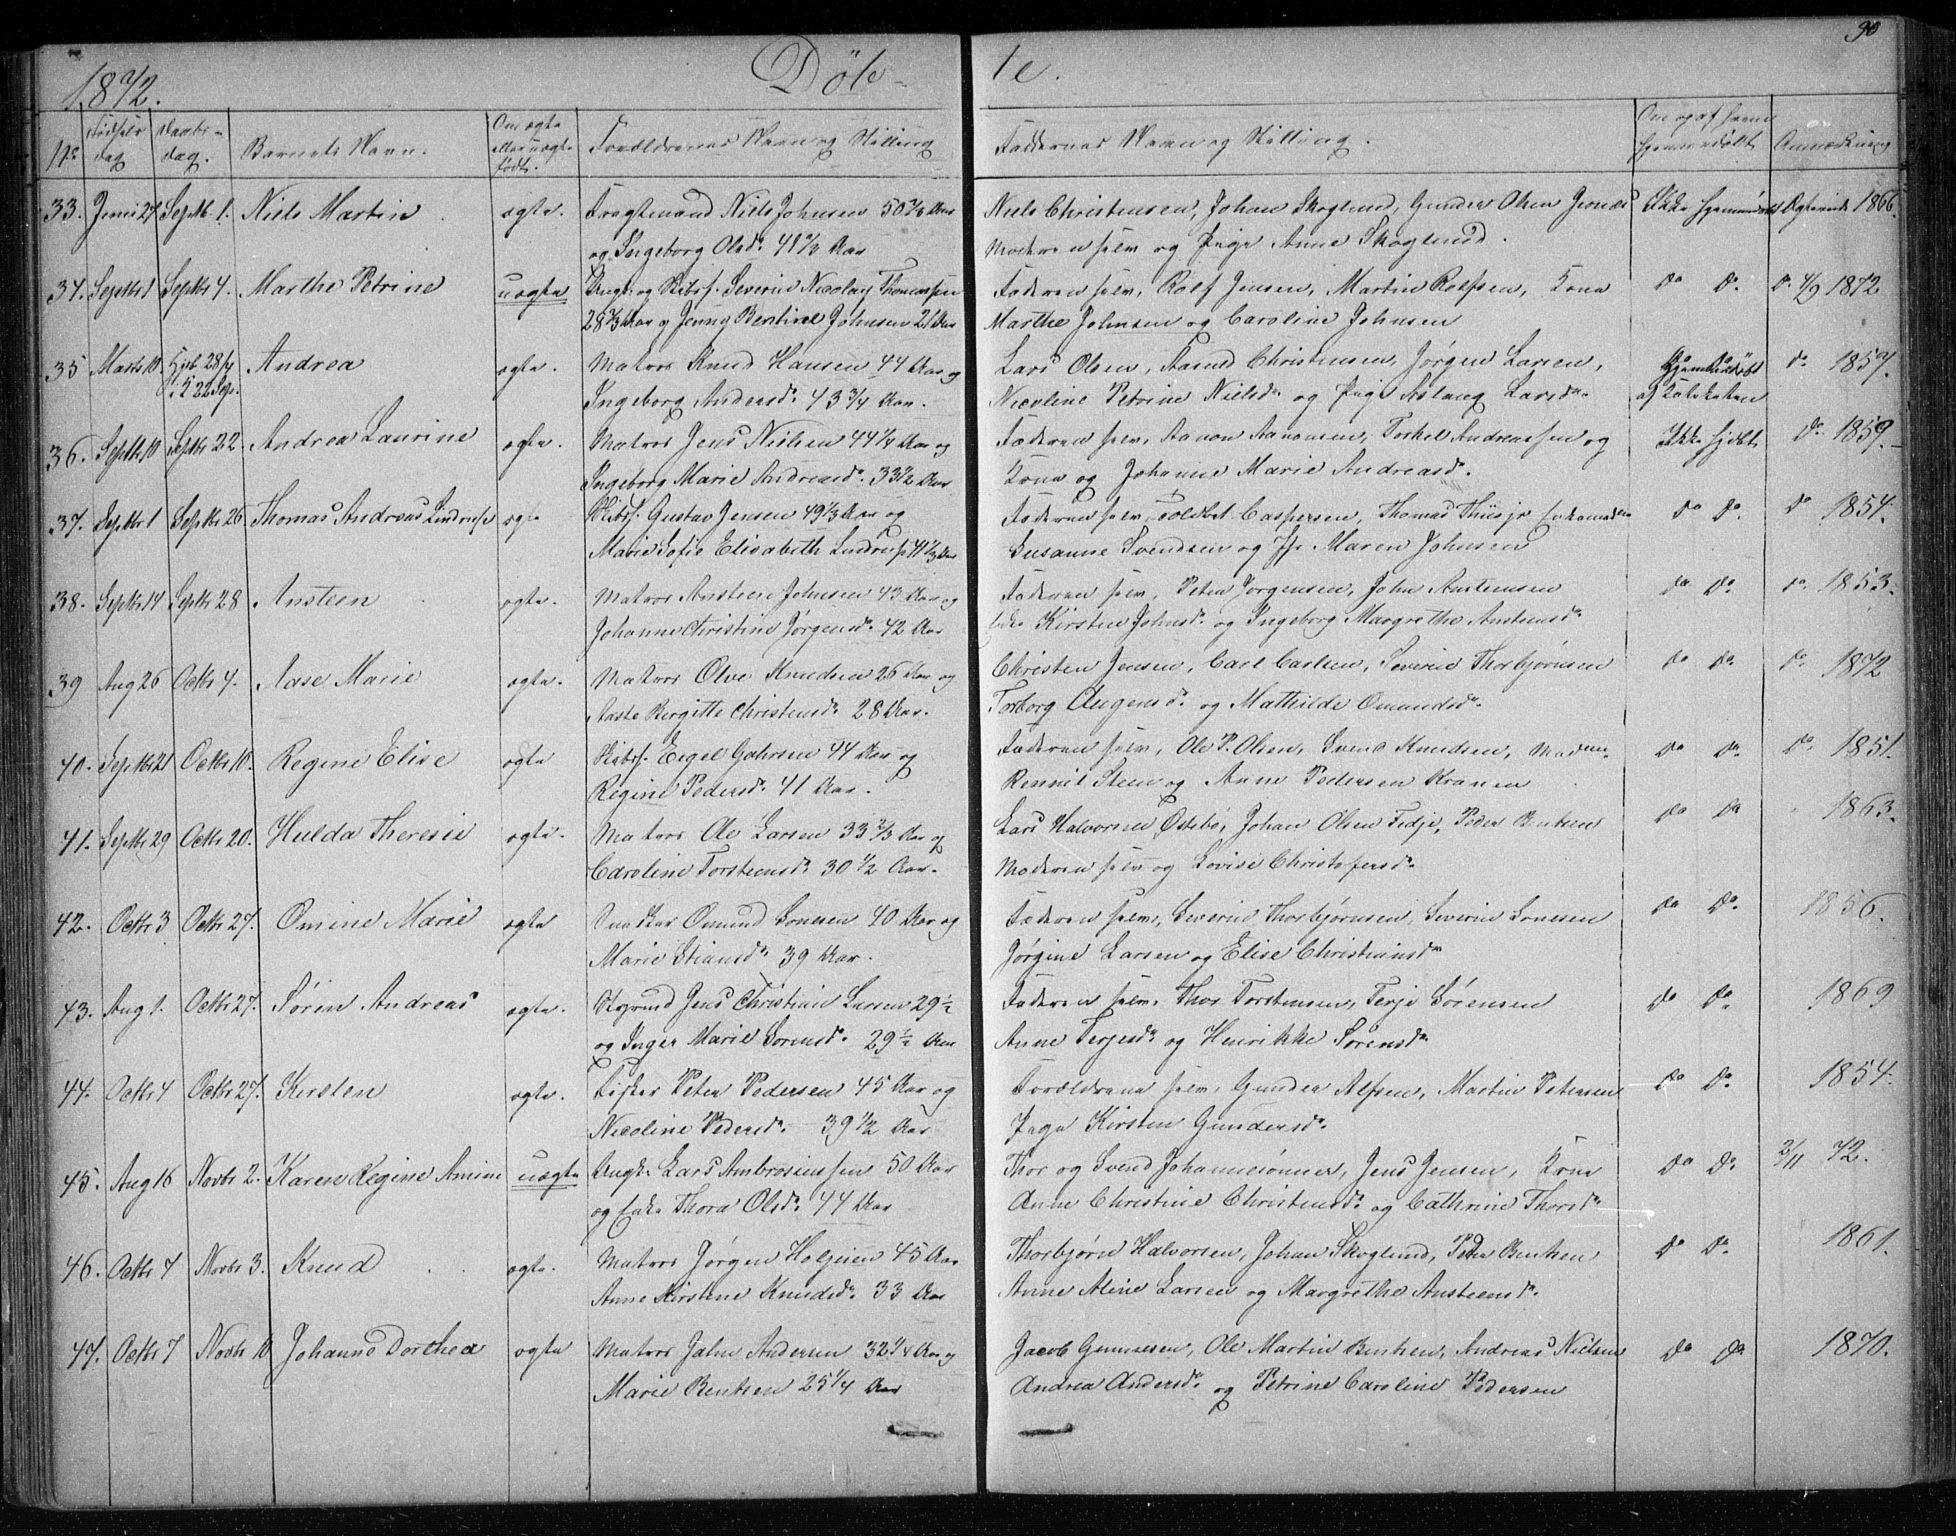 90
1872.
Døb-
te.
No Fødsels dag Daabs-dag. Barnets Navn. Om ægte eller uægte født. Forældrenes Navn og Stilling Faddernes Navn og Stilling. Om og af hvem hjemmedøbt Anmærkning
33. Juni 27 Septb. 1. Niels Martin ægte. Niels Johnsen 50 2/3 Aar Niels Christensen, Johan Skoglund, Gunder Olsen Ikke hjemmedøbt Ægteviede 1866.
og Ingeborg Olsd. 41 2/3 Aar Moderen selv og Pige Anne Skoglund.
34. Septbr 1 Septbr 4. Marthe Petrine uægte Ungk. og Severin Nicolay Thomassen Faderen selv, Rolf Jensen, Martin Rolfsen, Kone do do. do. 4/9 1872
28 2/3 Aar og Jenny Bertine Johnsen 21 Aar Marthe Johnsen og Caroline Johnsen
35 Marts 10. Hjb 28/4 i K 22 Sep. Andrea ægte. Matros Knud Hansen 44 Aar og Lars Olsen, Aanud Christensen, Jørgen Larsen, Hjemmedøbt do 1857.
Ingeborg Andersd. 43 3/4 Aar. Nicoline Petrine Nielsdr og Pige Aslaug Larsdr.
36. Septbr 10 Septbr 22. Andrea Laurine ægte. Matros Jens Nielsen 44 1/4 Aar og Faderen selv, Aanon Aanonsen, Torkel Andreassen og Ikke hjdbt do. 1859.
Ingeborg Marie Andreasd. 33 1/2 Aar Kone og Johanne Marie Andreasd.
37. Septbr 1 Septbr 26 Thomas Andreas ægte Gustav Jensen 49 1/3 Aar og Faderen selv, Toldbet. Caspersen, Thomas do do. do 1854.
Marie Sofie Elisabeth 41 1/3 Aar Susanne Svendsen og Jfr. Maren Johnsen
38. Septbr 14 Septbr 28 Ansteen ægte. Matros Ansteen Johnsen 43 Aar og Faderen selv, Peter Jørgensen, John Austensen do do. do. 1853.
Johanne Christine Jørgensd. 42 Aar Enke Kirsten Johnsd. og Ingeborg Margrethe Anstensd.
39 Aug 26 Octbr 4. Aase Marie ægte. Matros Olve Knudsen 26 Aar og Christen Jensen, Carl Carlsen, Severin Thorbjørnsen do do. do. 1872
Aaste Birgitte Christensd. 28 Aar. Torborg Augensd. og Mathilde Omundsd.
40. Septbr 21 Octbr 10. Regine Elise ægte Eigel Gahrsen 44 Aar og Faderen selv, Ole P. Olsen, Svend Knudsen, Madme. do do. do. 1851.
Regine Pedersd. 41 Aar. Steen og Anne Pedersen Kranen
41. Septbr 29 Octbr 20. Hulda Theresie ægte. Matros Ole Larsen 33 2/3 Aar og Lars Halvorsen Østebø, Johan Olsen Fedje, Peder Bentsen do do 1863.
Caroline Torstensd. 30 1/2 Aar. Moderen selv og Lovise Christofersdr
42. Octbr 3 Octbr 27. Omine Marie ægte Omund Sonesen 40 Aar og Faderen selv, Severin Thorbjørnsen, Severin Sonesen do do. 1856.
Marie Stiansd. 39 Aar. Jørgine Larsen og Elise Christiansdr
43. Aug 1. Octbr 27. Søren Andreas ægte. Jens Christian Larsen 29 1/2 Faderen selv, Thor Torstensen, Terje Sørensen do do. 1869
og Inger Marie Sørensd. 29 1/2 Aar Anne Terjesdr og Henrikke Sørensdr
44. Octbr 4 Octbr 27. Kirsten ægte. Fisker Peter Pedersen 45 Aar og Forældrene selv, Gunder Alfsen, Martin Petersen do do. 1854.
Nicoline Pedersd. 39 1/2 Aar Pige Kirsten Gundersd.
45. Aug 16 Novbr 2. Karen Regine Amine uægte Ungk. Lars Ambrosiussen 50 Aar Thor og Svend Johannesønner, Jens Jensen, Kone do do. 2/11 72.
og Enke Thora Olsd. 44 Aar Anne Christine Christensd. og Cathrine Thorsdr
46. Octbr 4 Novbr 3. Knud ægte. Matros Jørgen Holjesen 45 Aar Thorbjørn Halvorsen, Johan Skoglund, Peder Bentsen do do. 1861.
Anne Kirstine Knudsd. 33 Aar Anne Aline Larsen og Margrethe Austeensdr.
47. Octbr 7 Novbr 10 Johanne Dorthea ægte Matros John Andersen 32 1/4 Aar og Jacob Gunnesen, Ole Martin Bentsen, Andreas Nielsen do do 1870.
Marie Bentsen 25 1/4 Aar Andrea Andersd. og Petrine Caroline Pedersen